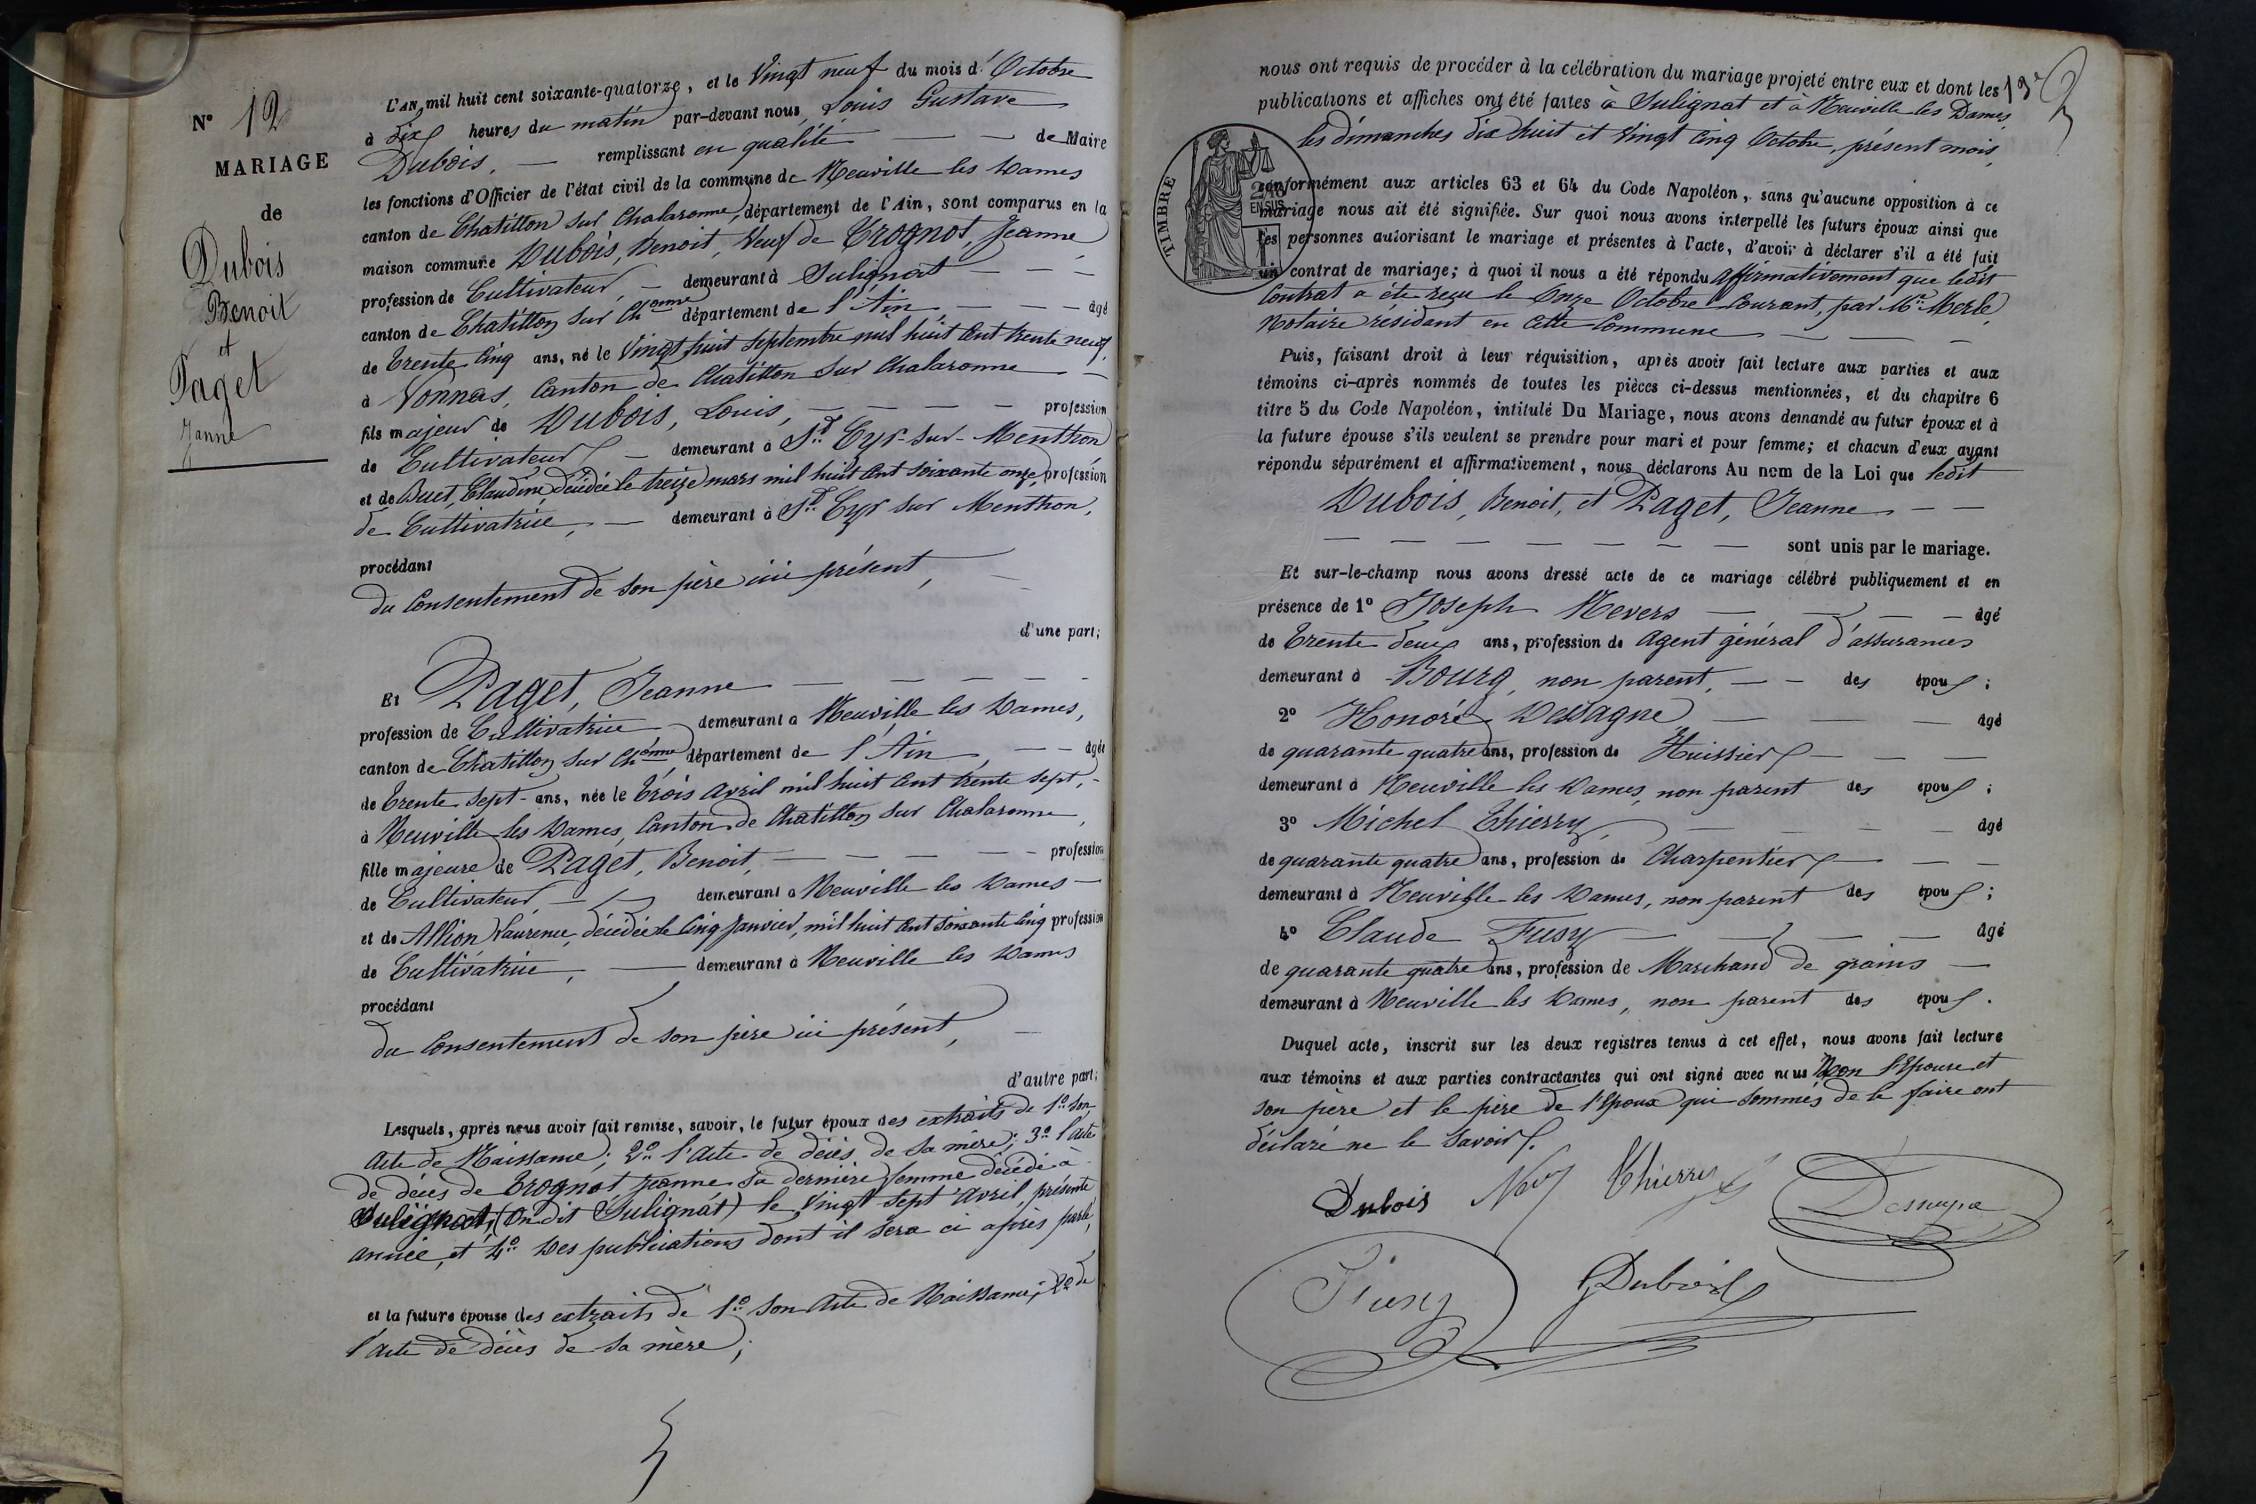 N° 12
MARIAGE
de
Dubois
Benoit
et
Paget
Jeanne
L'AN mil huit cent soixante-quatorze, et le Vingt neuf du mois d'Octobre
à Dix heures du matin par-devant nous, Louis Gustave
Dubois, — remplissant en qualité — — de Maire
les fonctions d'Officier de l'état civil de la commune de Neuville les Dames
canton de Chatillon sur Chalaronne, département de l'Ain, sont comparus en la
maison commune Dubois, Benoit, Veuf de Trognot, Jeanne
profession de Cultivateur, — demeurant à Sulignat — — —
canton de Chatillon sur Ch.onne département de l'Ain — — — âgé
de Trente Cinq ans, né le Vingt huit Septembre mil huit Cent trente neuf,
à Vonnas, Canton de Chatillon sur Chalaronne — —
fils majeur de Dubois, Louis, — — — — profession
de Cultivateur — demeurant à St Cyr-sur-Menthon
et de Buet, Claudine, décédée le treize mars mil huit Cent soixante onze, profession
de Cultivatrice, — demeurant à St Cyr sur Menthon,
procédant
du Consentement de son père ici présent,
d'une part;
Et Paget, Jeanne — — — — —
profession de Cultivatrice demeurant à Neuville les Dames,
canton de Chatillon sur Ch.onne département de l'Ain, — — âgée
de Trente sept - ans, née le Trois Avril mil huit Cent trente sept, -
à Neuville les Dames, Canton de Chatillon sur Chalaronne,
fille majeure de Paget, Benoit, — — — — profession
de Cultivateur — demeurant à Neuville les Dames —
et de Allion, Laurence, décédée le Cinq Janvier, mil huit Cent Soixante Cinq profession
de Cultivatrice, — demeurant à Neuville les Dames
procédant
du Consentement de son père ici présent,
d'autre part;
Lesquels, après nous avoir fait remise, savoir, le futur époux des extraits de 1° Son
Acte de Naissance; 2° l'Acte de décès de sa mère; 3° l'acte
de décès de Trognot Jeanne sa dernière femme décédé à
Sulignat, (On dit Sulignat) le Vingt Sept Avril, présente
année, et 4° Des publications dont il sera ci après parlé,
et la future épouse des extraits de 1° Son Acte de Naissance; 2° de
l'Acte de décès de sa mère;
nous ont requis de procéder à la célébration du mariage projeté entre eux et dont les
publications et affiches ont été faites à Sulignat et à Neuville les Dames,
les dimanches dix huit et Vingt Cinq Octobre, présent mois,
TIMBRE
conformément aux articles 63 et 64 du Code Napoléon, sans qu'aucune opposition à ce
mariage nous ait été signifiée. Sur quoi nous avons interpellé les futurs époux ainsi que
les personnes autorisant le mariage et présentes à l'acte, d'avoir à déclarer s'il a été fait
un contrat de mariage; à quoi il nous a été répondu Affirmativement que ledit
Contrat a été reçu le Onze Octobre Courant, par Me Merle,
Notaire résidant en Cette Commune — — —
Puis, faisant droit à leur réquisition, après avoir fait lecture aux parties et aux
témoins ci-après nommés de toutes les pièces ci-dessus mentionnées, et du chapitre 6
titre 5 du Code Napoléon, intitulé Du Mariage, nous avons demandé au futur époux et à
la future épouse s'ils veulent se prendre pour mari et pour femme; et chacun d'eux ayant
répondu séparément et affirmativement, nous déclarons Au nom de la Loi que ledit
Dubois, Benoit, et Paget, Jeanne — —
— — — — — — — sont unis par le mariage.
Et sur-le-champ nous avons dressé acte de ce mariage célébré publiquement et en
présence de 1° Joseph Nevers — — — âgé
de Trente deux ans, profession de Agent général d'assurances
demeurant à Bourg, non parent, — — des époux;
2° Honoré Dessagne — — — âgé
de quarante quatre ans, profession de Huissier — — —
demeurant à Neuville les Dames, non parent des époux;
3° Michel Thierry, — — — — âgé
de quarante quatre ans, profession de Charpentier — — —
demeurant à Neuville les Dames, non parent des époux;
4° Claude Fusy — — — — âgé
de quarante quatre ans, profession de Marchand de grains —
demeurant à Neuville les Dames, non parent des époux.
Duquel acte, inscrit sur les deux registres tenus à cet effet, nous avons fait lecture
aux témoins et aux parties contractantes qui ont signé avec nous Non l'Epouse et
son père et le père de l'Epoux qui sommés de le faire ont
déclaré ne le Savoir.
Dubois Thierry
Fusy G Dubois